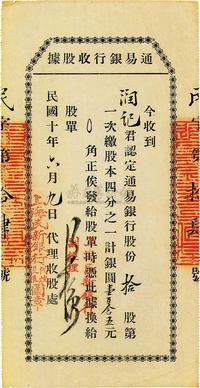 通易銀行收股據
今收到
潤記君認定通易銀行股份拾股第
一次繳股本四分之一計銀圓壹百念五元
0角正俟發給股單時憑此據換給
股單
民國十年六月九日代理收股處
民字第拾肆號